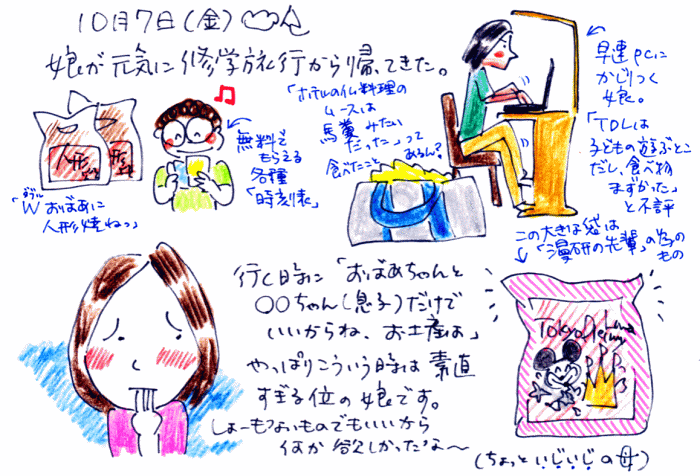 10月7日(金)
娘が元気に修学旅行から帰ってきた。
早速pcに
かじりつく
娘。
「TDLは
子どもの遊ぶとこ
だし、食べ物
まずかった」
と不評
「ホテルの仏料理の
ムースは
馬糞みたい
だった」って
食べたこと
あるん?
無料で
もらえる
各種
「時刻表」
人形
「Wおばあに
ダブル
人形焼ねっ」
この大きな袋は
「漫研の先輩」の為の
もの
行く時に「おばあちゃんと
〇〇ちゃん(息子)だけで
いいからね、お土産は」
やっぱりこういう時は素直
すぎる位の娘です。
しょーもないものでもいいから
何か欲しかったな〜
Tokyo
(ちょっといじいじの母)